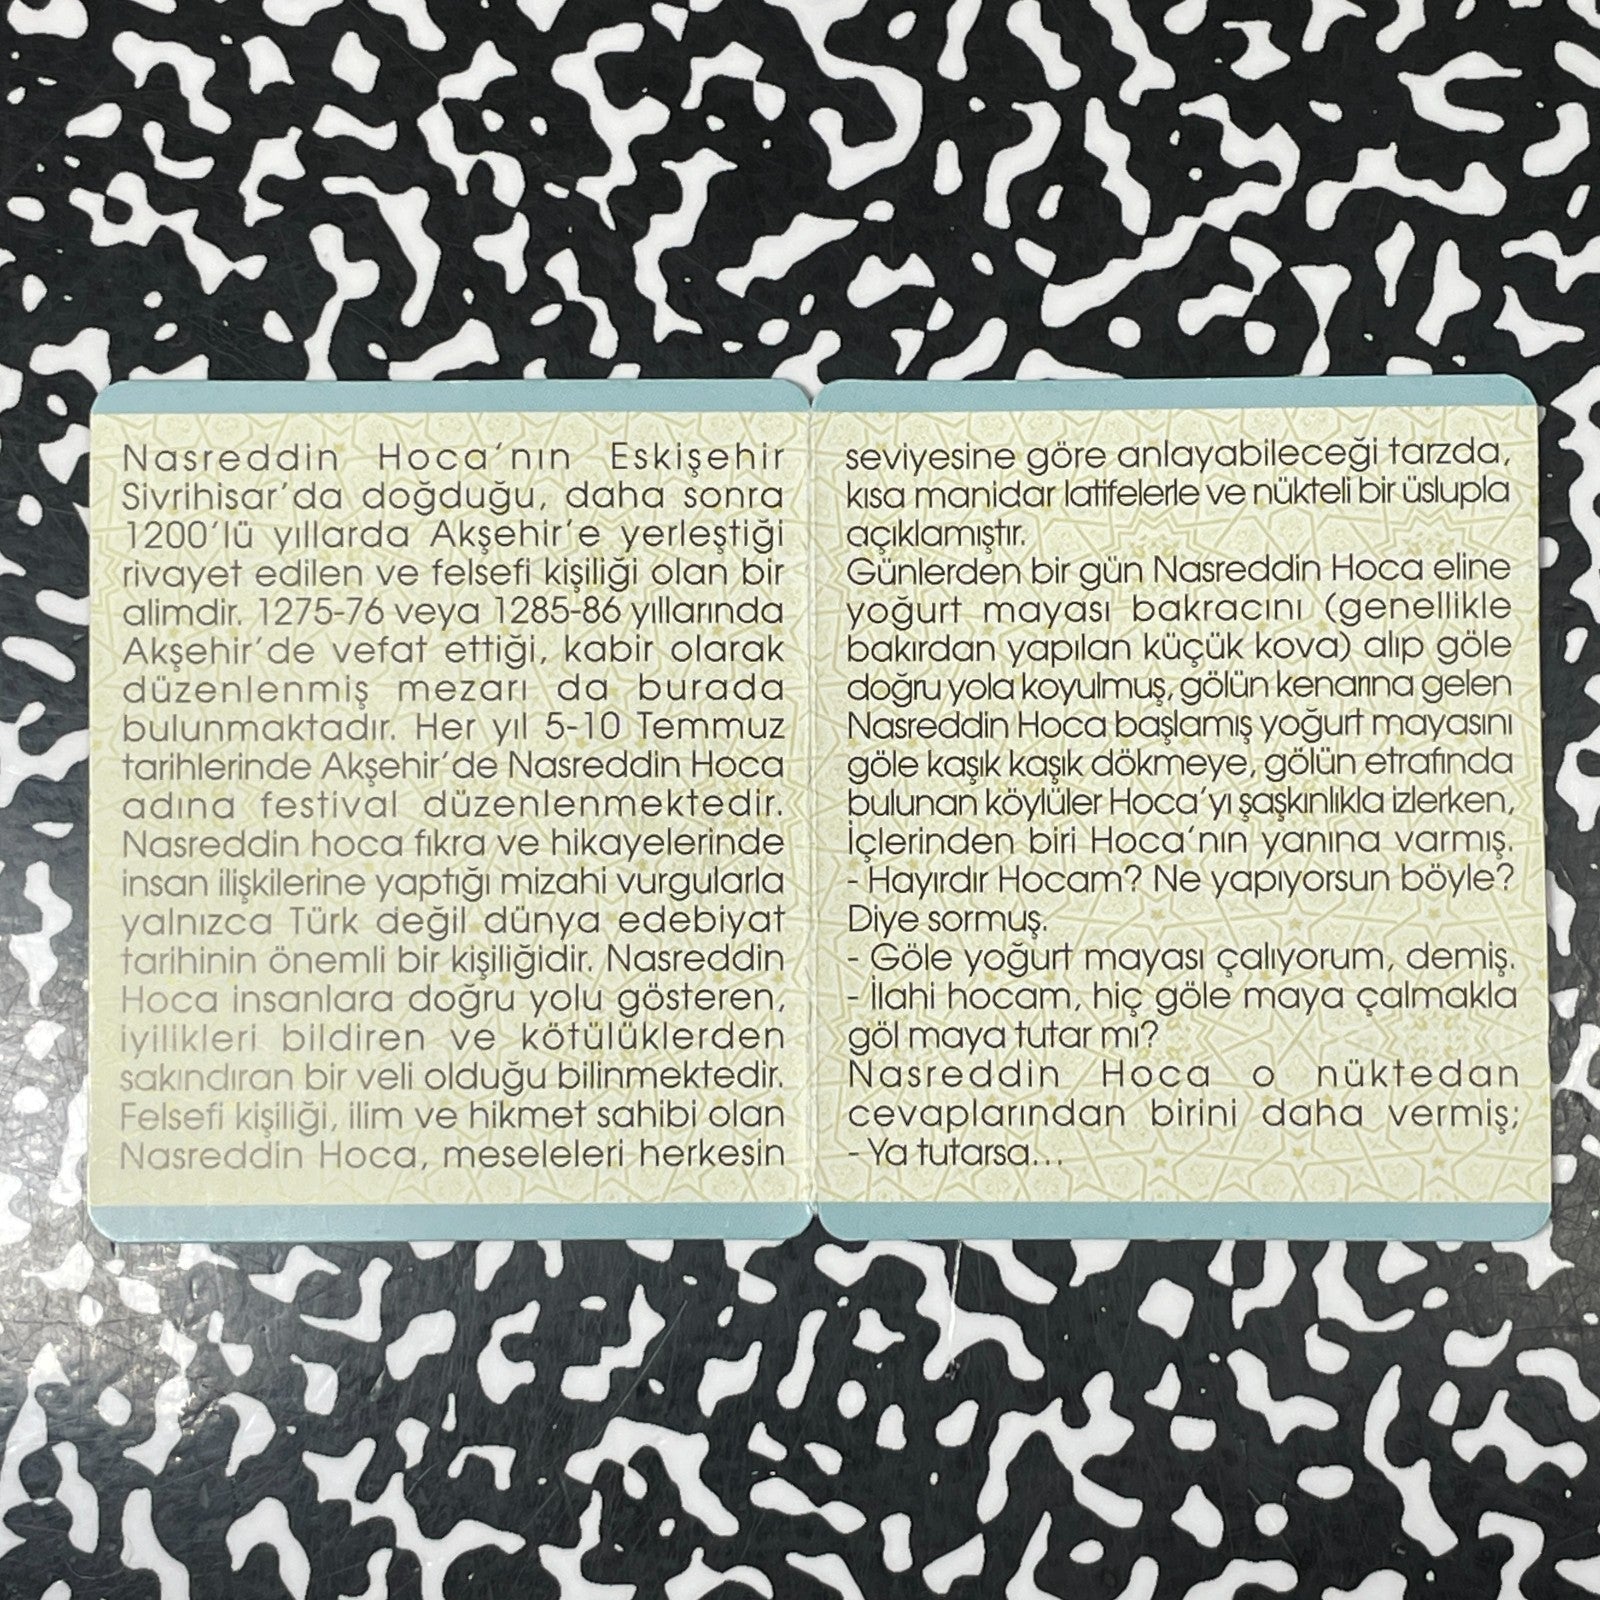 Nasreddin Hoca'nın Eskişehir
Sivrihisar'da doğduğu, daha sonra
1200'lü yıllarda Akşehir'e yerleştiği
rivayet edilen ve felsefi kişiliği olan bir
alimdir. 1275-76 veya 1285-86 yıllarında
Akşehir'de vefat ettiği, kabir olarak
düzenlenmiş mezarı da burada
bulunmaktadır. Her yıl 5-10 Temmuz
tarihlerinde Akşehir'de Nasreddin Hoca
adına festival düzenlenmektedir.
Nasreddin hoca fıkra ve hikayelerinde
insan ilişkilerine yaptığı mizahi vurgularla
yalnızca Türk değil dünya edebiyat
tarihinin önemli bir kişiliğidir. Nasreddin
Hoca insanlara doğru yolu gösteren,
iyilikleri bildiren ve kötülüklerden
sakındıran bir veli olduğu bilinmektedir.
Felsefi kişiliği, ilim ve hikmet sahibi olan
Nasreddin Hoca, meseleleri herkesin
seviyesine göre anlayabileceği tarzda,
kısa manidar latifelerle ve nükteli bir üslupla
açıklamıştır.
Günlerden bir gün Nasreddin Hoca eline
yoğurt mayası bakracını (genellikle
bakırdan yapılan küçük kova) alıp göle
doğru yola koyulmuş, gölün kenarına gelen
Nasreddin Hoca başlamış yoğurt mayasını
göle kaşık kaşık dökmeye, gölün etrafında
bulunan köylüler Hoca'yı şaşkınlıkla izlerken,
İçlerinden biri Hoca'nın yanına varmış.
- Hayırdır Hocam? Ne yapıyorsun böyle?
Diye sormuş.
- Göle yoğurt mayası çalıyorum, demiş.
- İlahi hocam, hiç göle maya çalmakla
göl maya tutar mı?
Nasreddin Hoca o nüktedan
cevaplarından birini daha vermiş;
- Ya tutarsa...